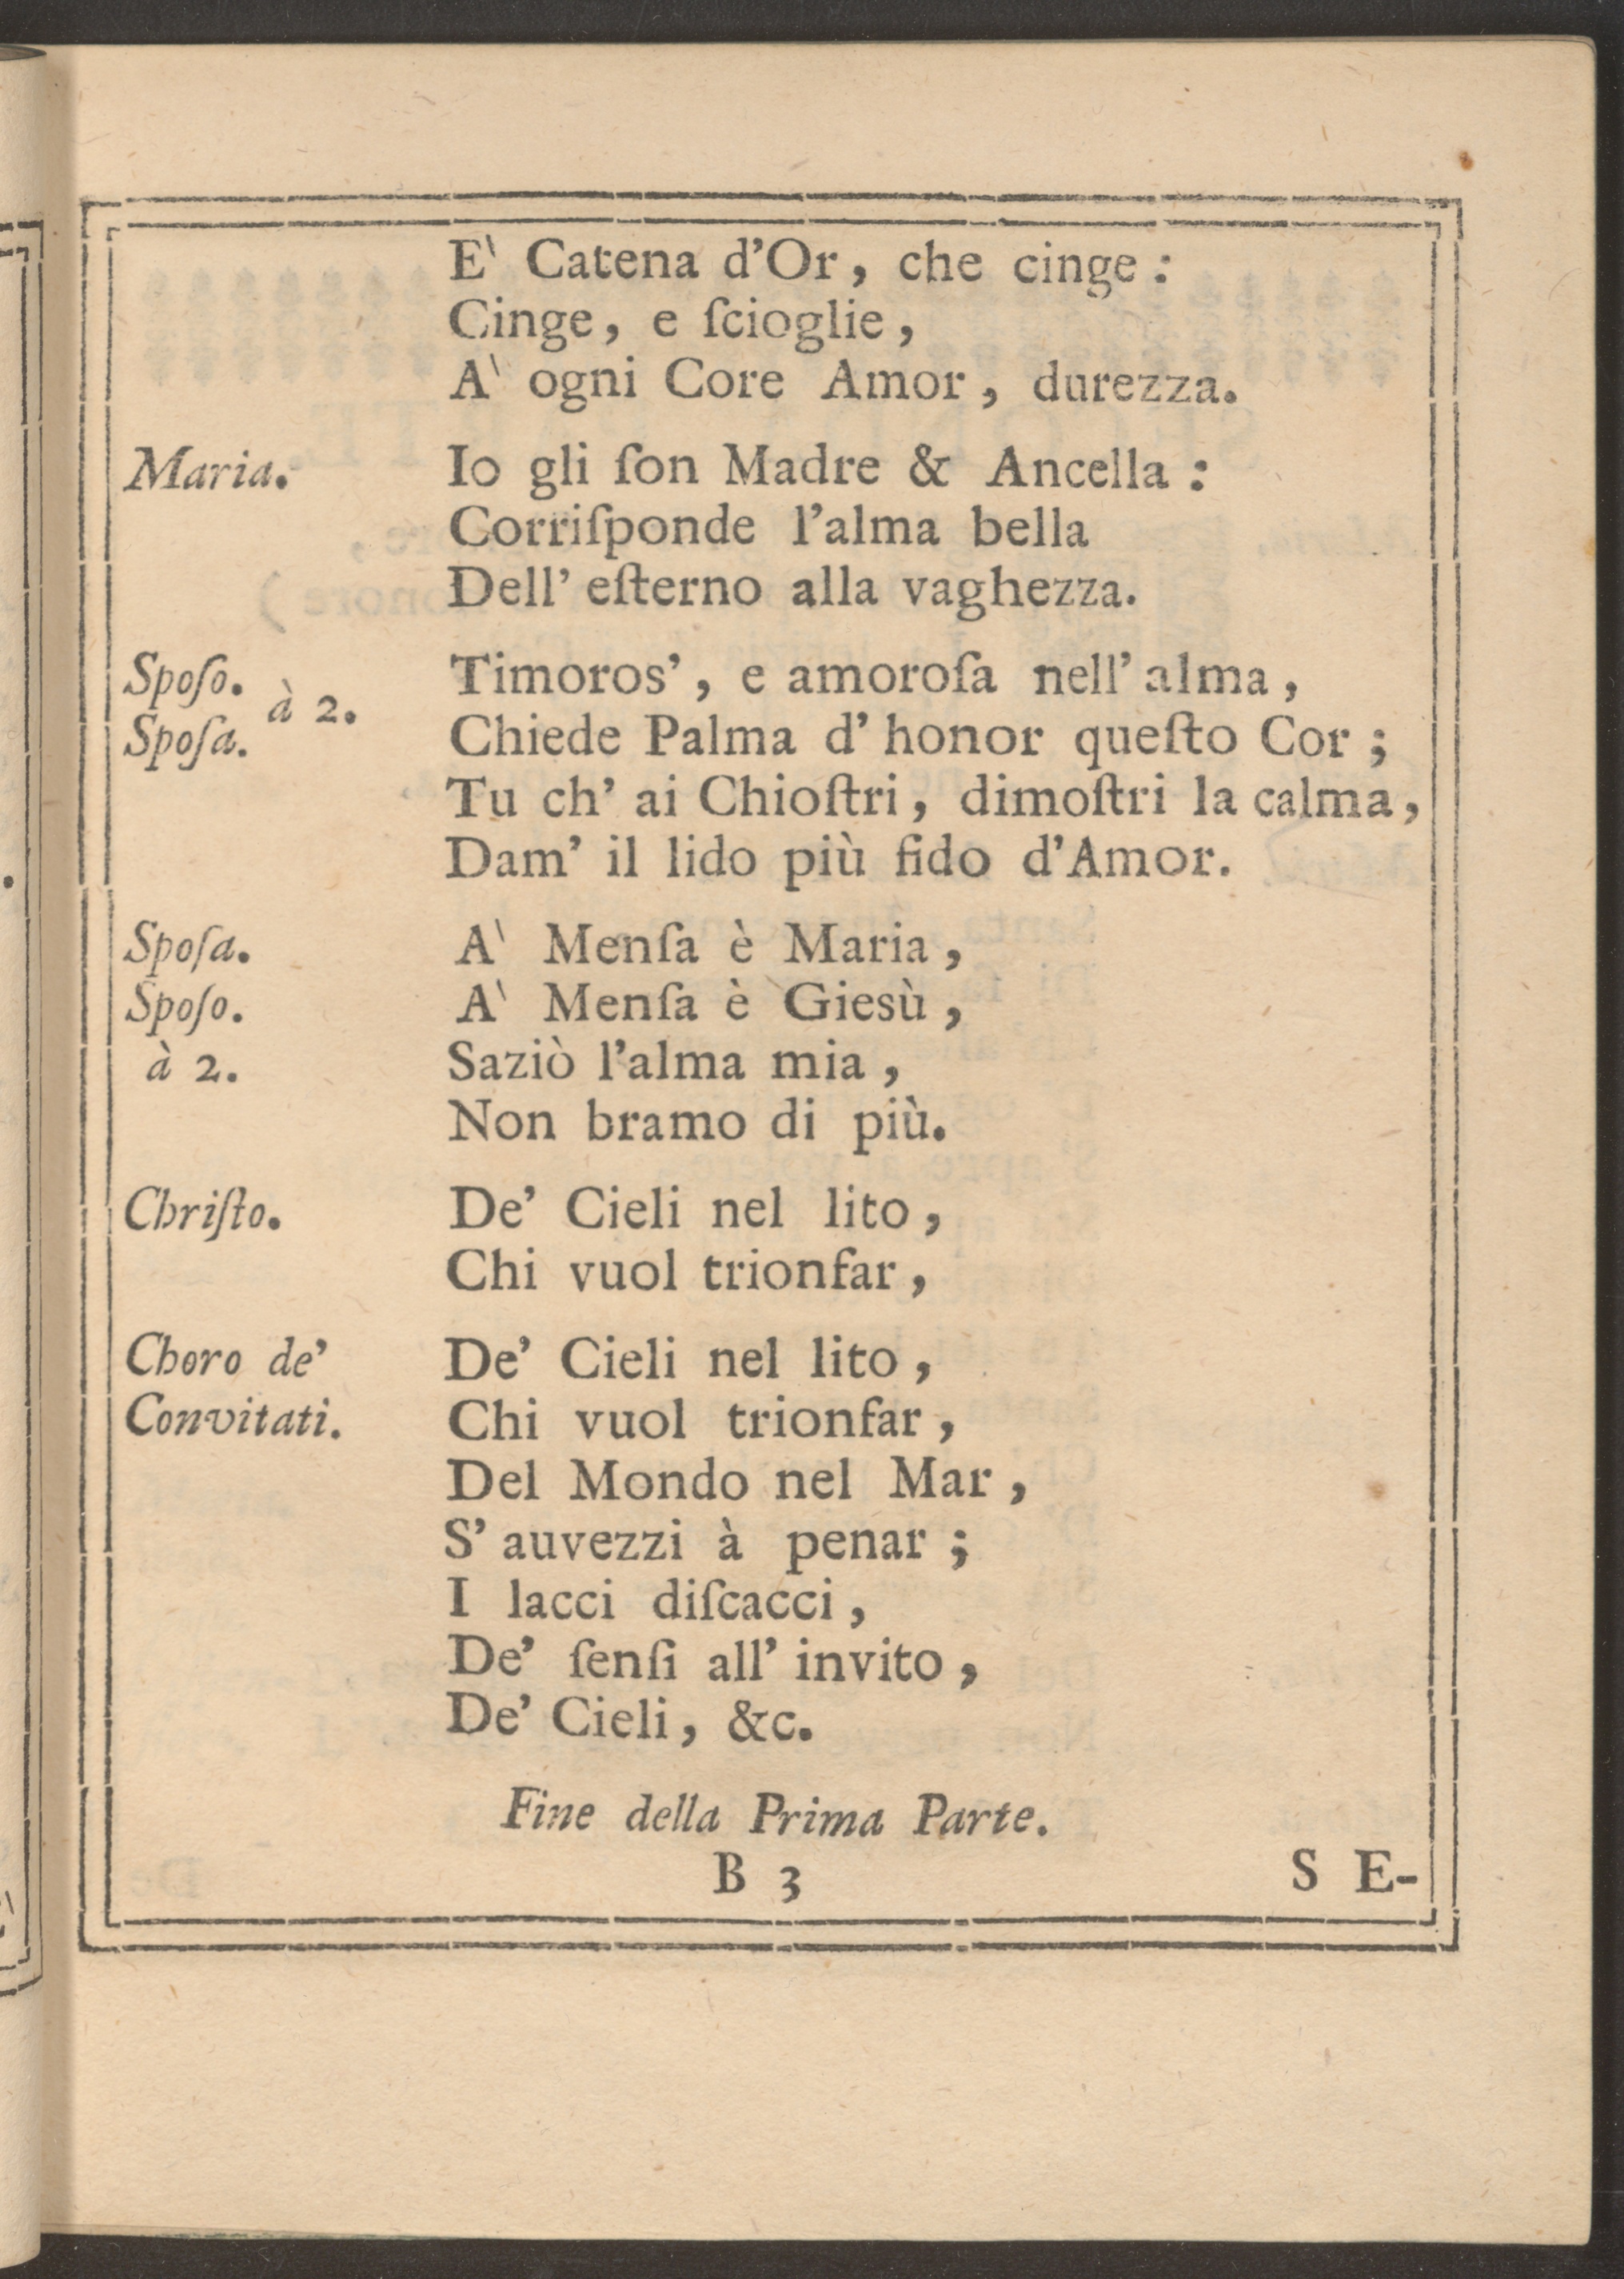 E' Catena d'Or, che cinge:
Cinge, e ſcioglie,
A' ogni Core Amor, durezza.
Maria. Io gli ſon Madre & Ancella:
Corriſponde l'alma bella
Dell' eſterno alla vaghezza.
Spoſo. à 2. Timoros', e amoroſa nell' alma,
Spoſa. Chiede Palma d' honor queſto Cor;
Tu ch' ai Chioſtri, dimoſtri la calma,
Dam' il lido più fido d'Amor.
Spoſa. A' Menſa è Maria,
Spoſo. A' Menſa è Giesù,
à 2. Saziò l'alma mia,
Non bramo di più.
Chriſto. De' Cieli nel lito,
Chi vuol trionfar,
Choro de' De' Cieli nel lito,
Convitati. Chi vuol trionfar,
Del Mondo nel Mar,
S' auvezzi à penar;
I lacci diſcacci,
De' ſenſi all' invito,
De' Cieli, &c.
Fine della Prima Parte.
B 3 S E-